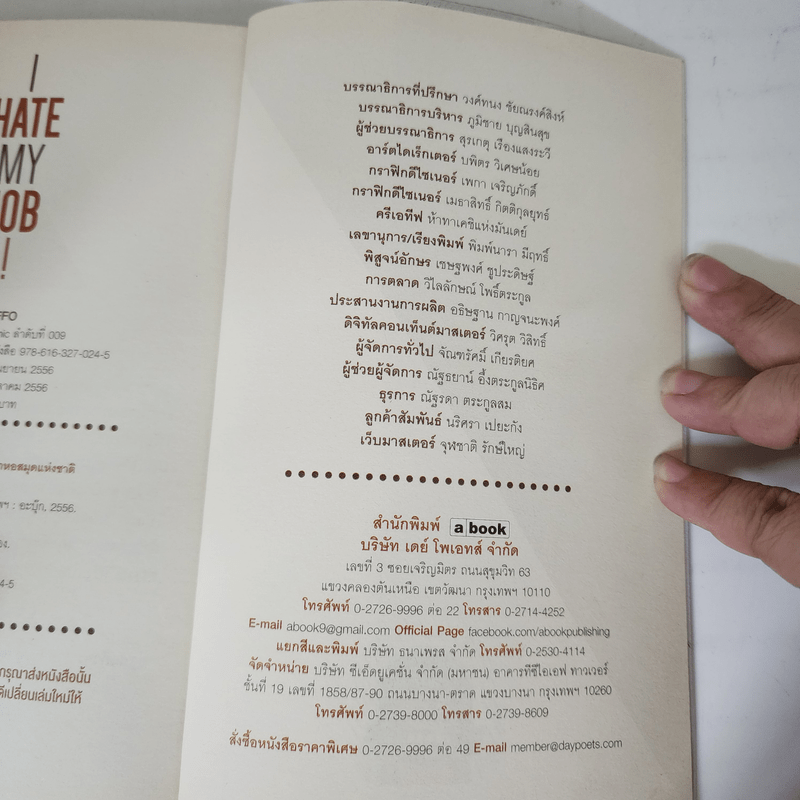 I
HATE
MY
JOB
!
FFO
nic ลำดับที่ 009
978-616-327-024-5
2556
2556
บาท
หอสมุดแห่งชาติ
: อะบุ๊ก, 2556.
4-5
กรุณาส่งหนังสือนั้น
เปลี่ยนเล่มใหม่ให้
บรรณาธิการที่ปรึกษา วงศ์ทนง ชัยณรงค์สิงห์
บรรณาธิการบริหาร ภูมิชาย บุญสินสุข
ผู้ช่วยบรรณาธิการ สุรเกตุ เรืองแสงระวี
อาร์ตไดเร็กเตอร์ บพิตร วิเศษน้อย
กราฟิกดีไซเนอร์ เพกา เจริญภักดิ์
กราฟิกดีไซเนอร์ เมธาสิทธิ์ กิตติกุลยุทธ์
ครีเอทีฟ ห้าทาเคชิแห่งมันเดย์
เลขานุการ/เรียงพิมพ์ พิมพ์นารา มีฤทธิ์
พิสูจน์อักษร เชษฐพงศ์ ชูประดิษฐ์
การตลาด วิไลลักษณ์ โพธิ์ตระกูล
ประสานงานการผลิต อธิษฐาน กาญจนะพงศ์
ดิจิทัลคอนเท็นต์มาสเตอร์ วิศรุต วิสิทธิ์
ผู้จัดการทั่วไป จัณฑรัศมิ์ เกียรติยศ
ผู้ช่วยผู้จัดการ ณัฐธยาน์ อึ้งตระกูลนิธิศ
ธุรการ ณัฐรดา ตระกูลสม
ลูกค้าสัมพันธ์ นริศรา เปยะกัง
เว็บมาสเตอร์ จุฬชาติ รักษ์ใหญ่
สำนักพิมพ์ a book
บริษัท เดย์ โพเอทส์ จำกัด
เลขที่ 3 ซอยเจริญมิตร ถนนสุขุมวิท 63
แขวงคลองตันเหนือ เขตวัฒนา กรุงเทพฯ 10110
โทรศัพท์ 0-2726-9996 ต่อ 22 โทรสาร 0-2714-4252
E-mail abook9@gmail.com Official Page facebook.com/abookpublishing
แยกสีและพิมพ์ บริษัท ธนาเพรส จำกัด โทรศัพท์ 0-2530-4114
จัดจำหน่าย บริษัท ซีเอ็ดยูเคชั่น จำกัด (มหาชน) อาคารทีซีไอเอฟ ทาวเวอร์
ชั้นที่ 19 เลขที่ 1858/87-90 ถนนบางนา-ตราด แขวงบางนา กรุงเทพฯ 10260
โทรศัพท์ 0-2739-8000 โทรสาร 0-2739-8609
สั่งซื้อหนังสือราคาพิเศษ 0-2726-9996 ต่อ 49 E-mail member@daypoets.com